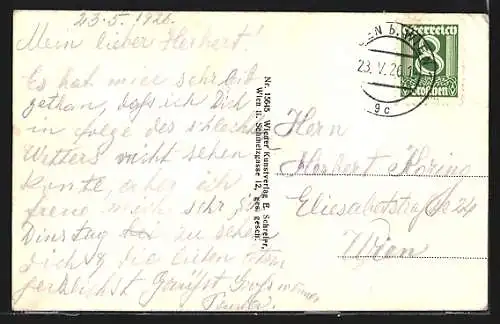 23.5.1926.
Mein lieber Herbert!
Es hat mir sehr leid
gethan, daß ich Dich
in folge des schlechten
Wetters nicht sehen
konte, aber ich
freue mich sehr
Dinstag zu sehen
Dich & die lieben
herzlichst Grüßt Groß
Nr. 15685 Wiener Kunstverlag E. Schreier,
Wien II. Schmelzgasse 12, ges. gesch.
23.V.26
9c
Österreich
8
Groschen
Herrn
Herbert
Eliesabetstraße 24
Wien